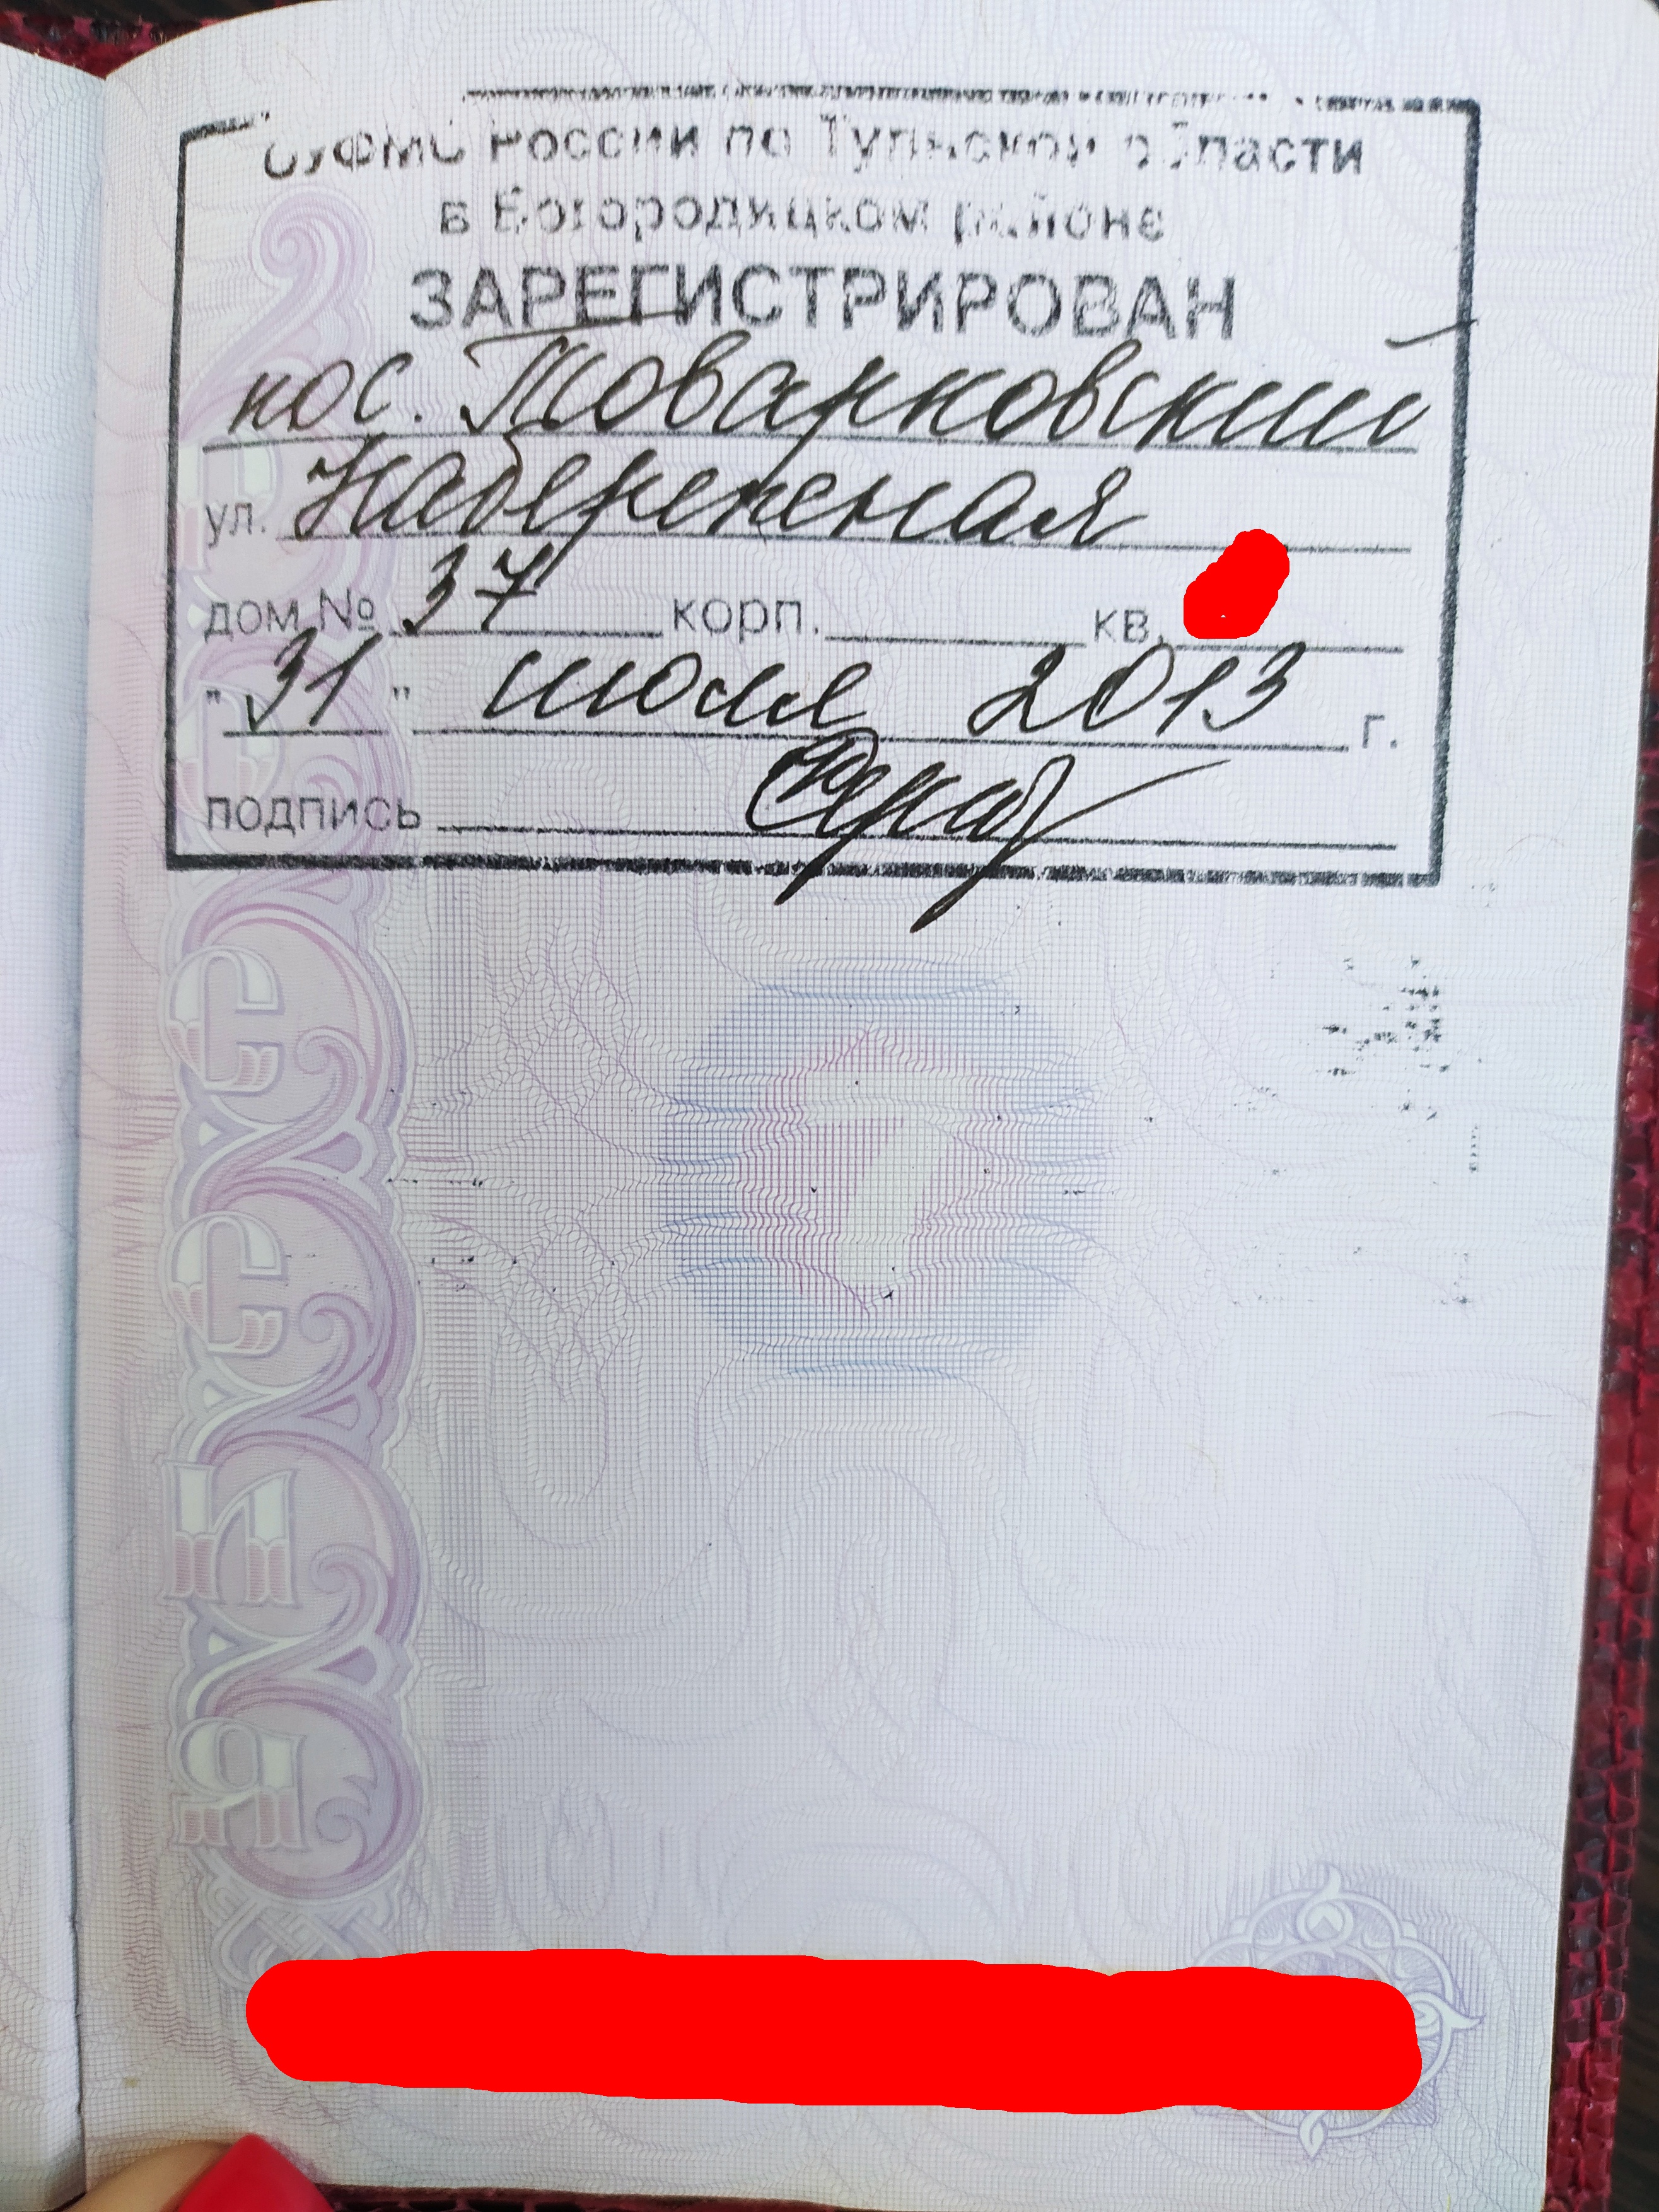 ОУФМС России по Тульской области
в Богородицком районе
ЗАРЕГИСТРИРОВАН
пос. Товарковский
ул. Набережная
дом № 37 корп. кв.
"31" июля 2013 г.
подпись
РОССИЯ